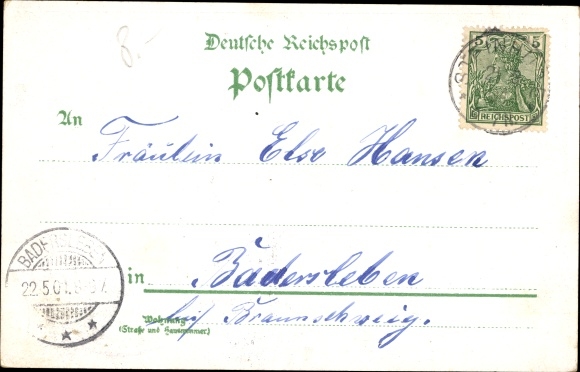 8.-
Deutsche Reichspost
Postkarte
5 5
REICHSPOST
An
Fräulein Else Hansen
in Badersleben
Wohnung
(Straße und Hausnummer)
bei Braunschweig.
22.5.01.